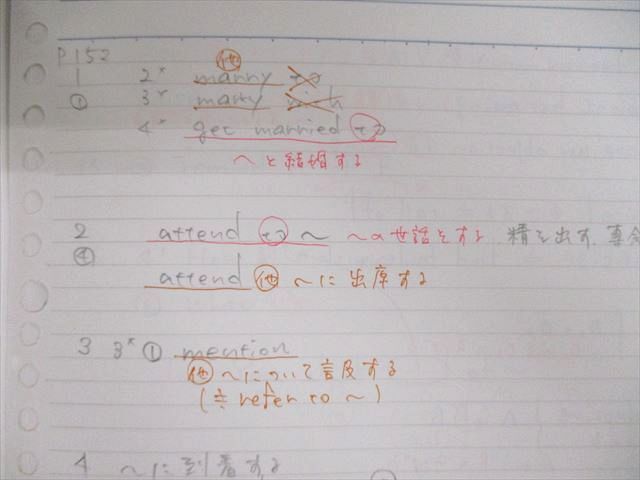 P152
他
1 2× marry to
① 3× marry with
4× get married to
〜と結婚する
2 attend to 〜 〜の世話をする 精を出す 専念
④ attend 他 〜に出席する
3 3× ① mention
他 〜について言及する
(≒ refer to 〜)
4 〜に到着する